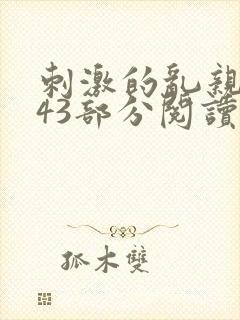 刺激的亂親
43部分閱讀
孤木雙